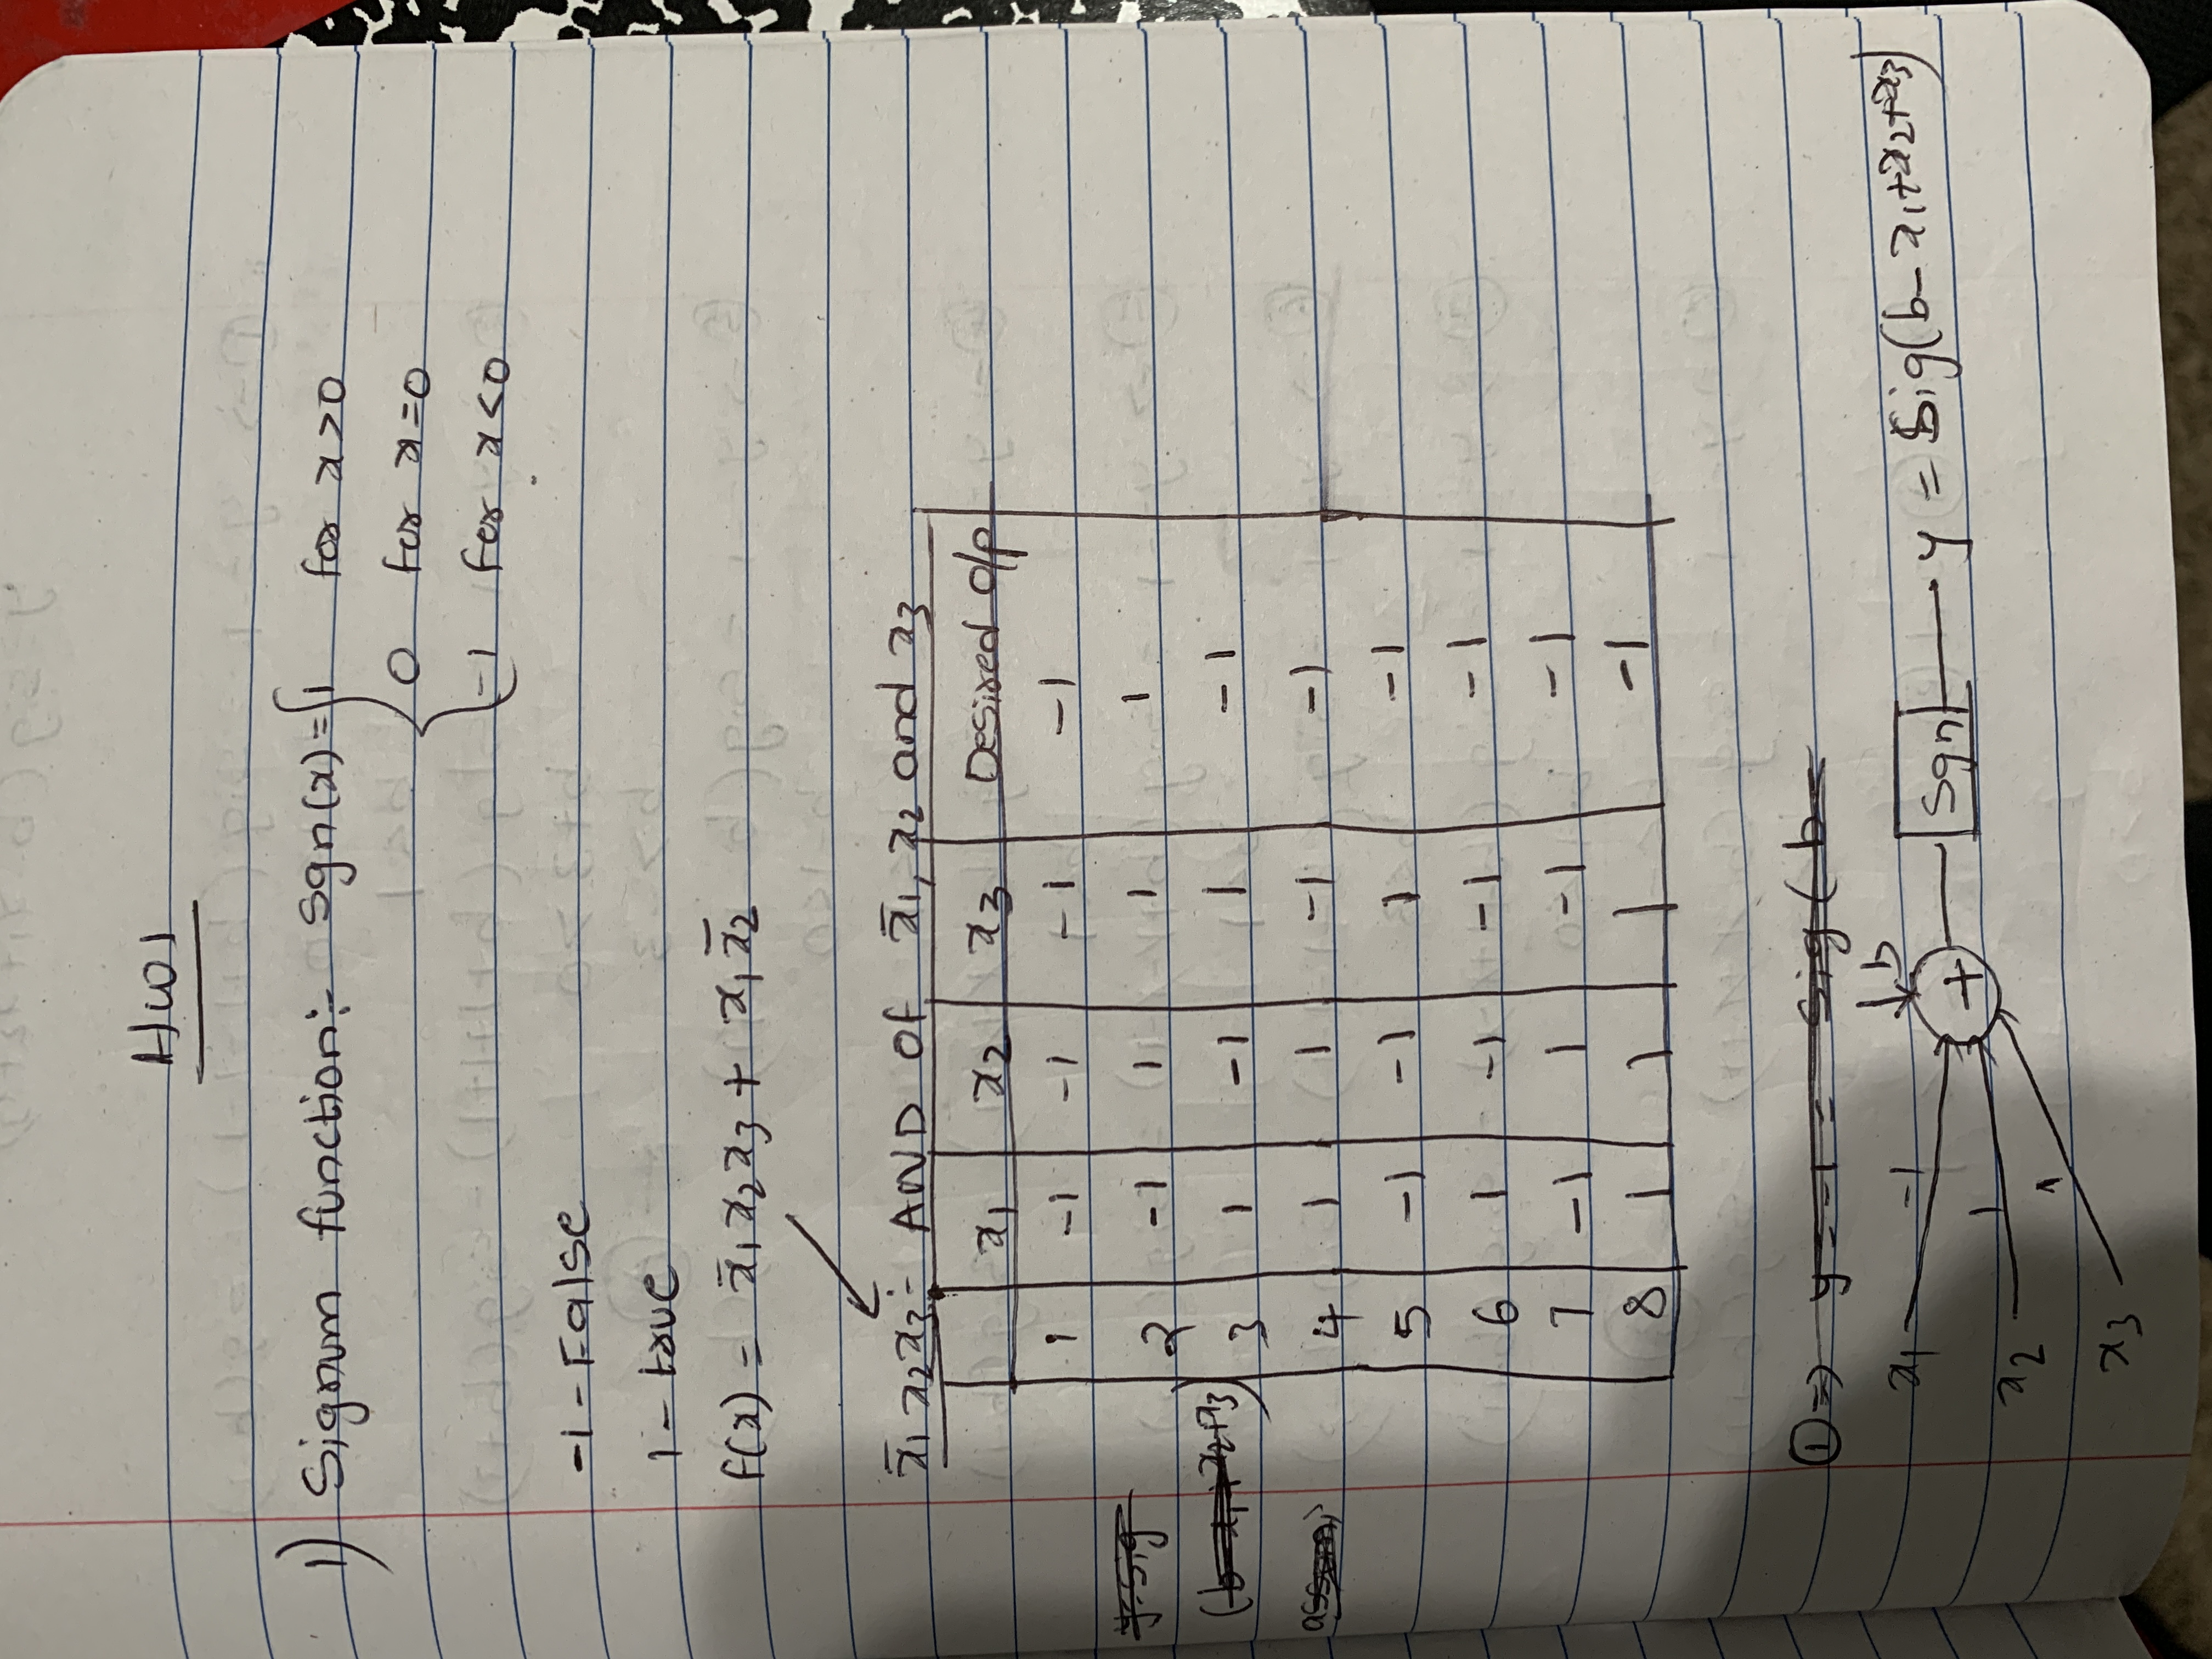 HW1
1) Signum function:- Sgn(x) = { 1 for x>0
0 for x=0
-1 for x<0
-1 - False
1 - true
f(x) = x̄₁x₂x₃ + x₁x̄₂
x̄₁x₂x₃:- AND OF x̄₁, x₂ and x₃
x₁ x₂ x₃ Desired o/p
1 -1 -1 -1 -1
2 -1 1 1 1
3 1 -1 1 -1
4 1 1 -1 -1
5 -1 -1 1 -1
6 1 -1 -1 -1
7 -1 1 -1 -1
8 1 1 1 -1
y=sig
(b-x₁+x₂+x₃)
① ⇒ y=-1 = Sig(b-
↓b
x₁ -1
+ Sgn y = Sig(b-x₁+x₂+x₃)
x₂ 1
x₃ 1